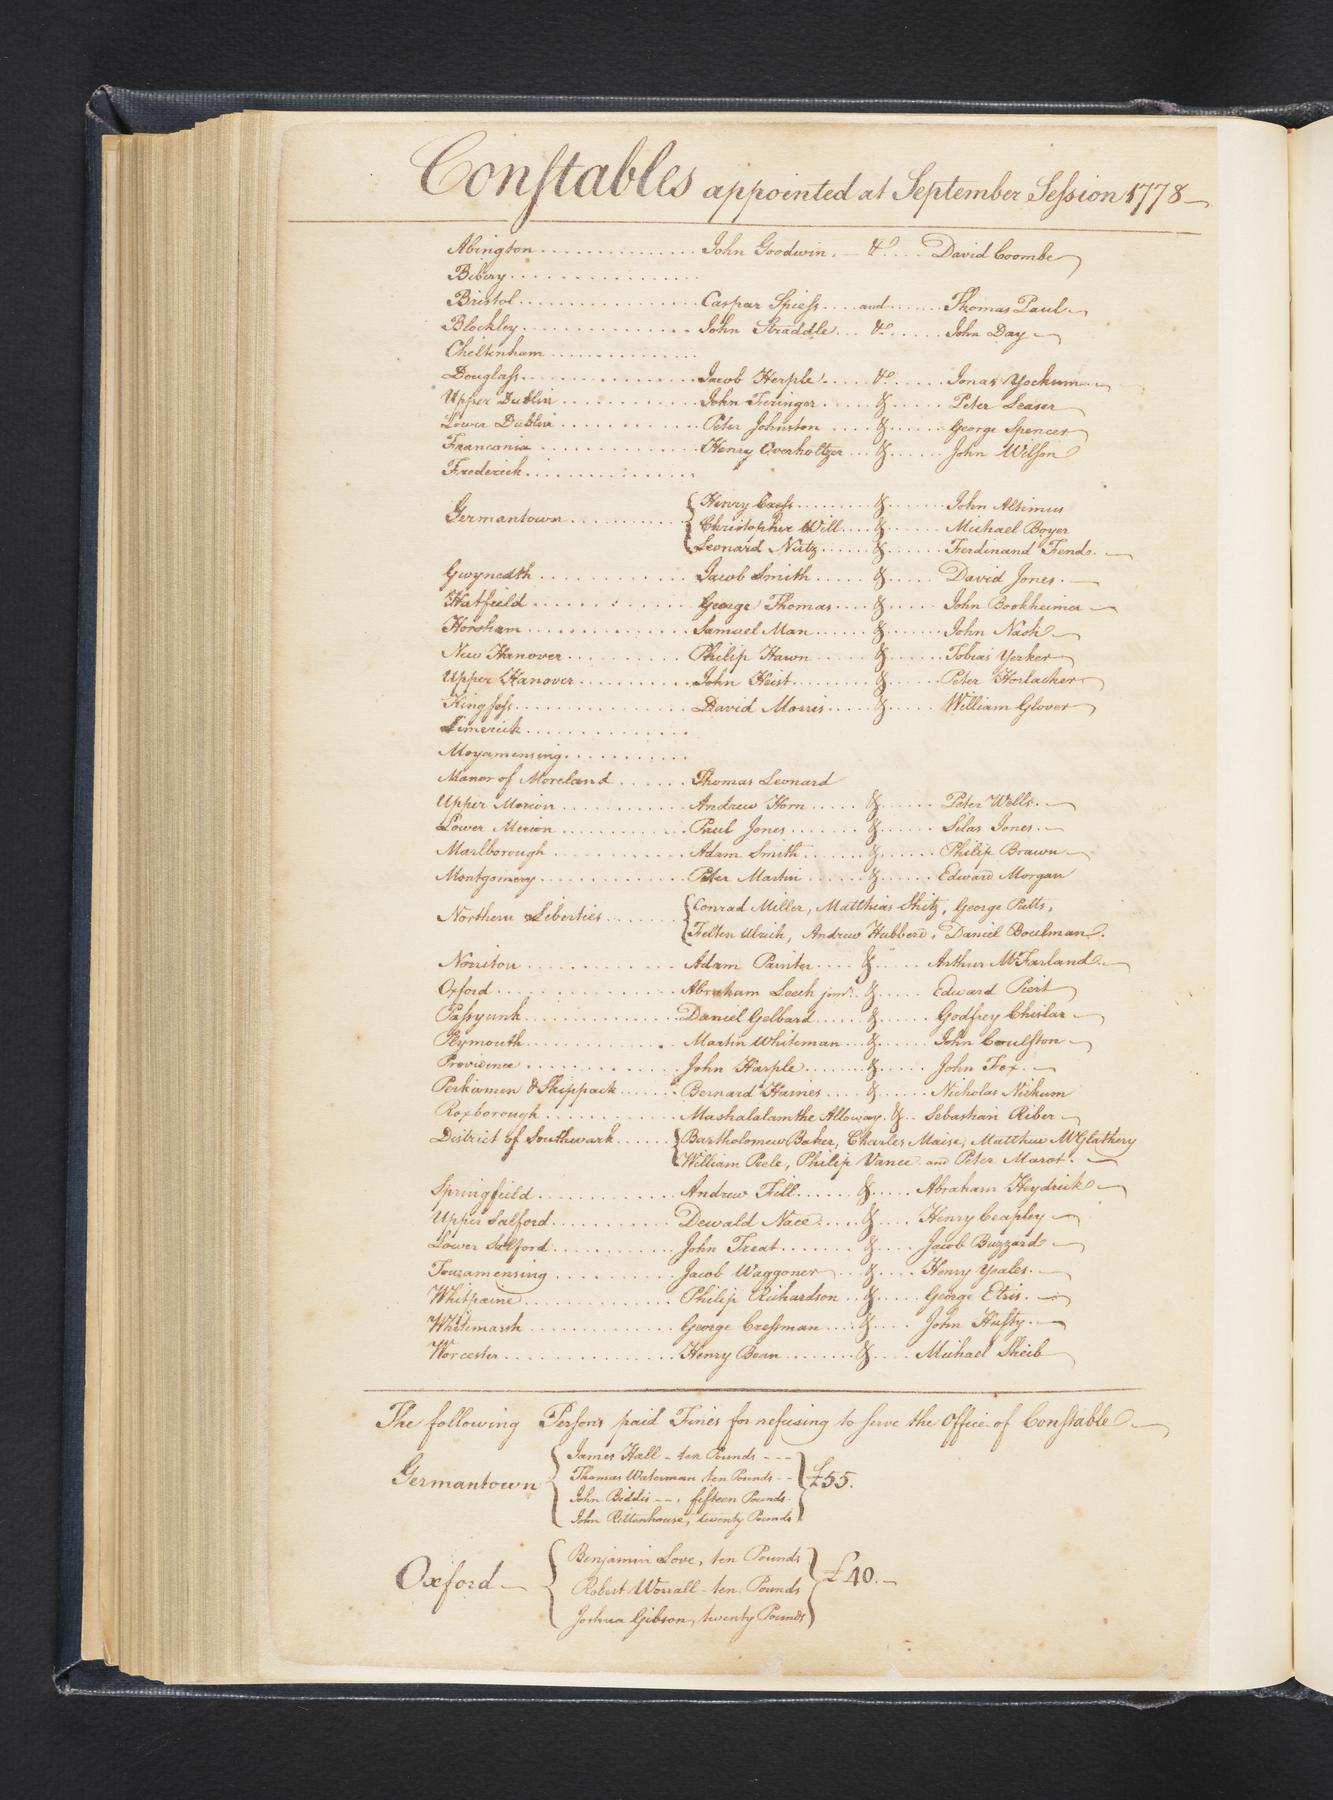 Constables appointed at September Session 1778
Abington John Goodwin &c David Coombe
Bibery
Bristol Caspar Spiess and Thomas Paul
Blockley John Straddle &c John Day
Cheltenham
Douglass Jacob Herple &c Jonas Yockum
Upper Dublin John Fieringer & Peter Leaser
Lower Dublin Peter Johnston & George Spencer
Franconia Henry Overholtzer & John Wilson
Frederick
Henry Cress & John Altimus
Germantown Christopher Will & Michael Boyer
Leonard Nutz & Ferdinand Fend
Gwynedth Jacob Smith & David Jones
Hatfield George Thomas & John Bookheimer
Horsham Samuel Man & John Nash
New Hanover Philip Hawn & Tobias Yerker
Upper Hanover John Heist & Peter Horlacher
Kingsess David Morris & William Glover
Limerick
Moyamensing
Manor of Moreland Thomas Leonard
Upper Merion Andrew Horn & Peter Wells
Lower Merion Paul Jones & Silas Jones
Marlborough Adam Smith & Philip Brawn
Montgomery Peter Martin & Edward Morgan
Conrad Miller, Matthias George Putts,
Northern Liberties Felten Ulrich, Andrew Hubberd, Daniel Boulman
Norriton Adam Painter & Arthur McFarland
Oxford Abraham Leech junr. & Edward Piert
Passyunk Daniel Gelbard & Godfrey Chislar
Plymouth Martin Whiteman & John Coulston
Providence John Harple & John Fox
Perkiomen & Skippack Bernard Haines & Nicholas Nickum
Roxborough Mashalalamthe Alloway & Sebastian Riber
District of Southwark Bartholomew Baker, Charles Maise, Matthew McGlathery
William Peele, Philip Vance and Peter Marot.
Springfield Andrew Fill & Abraham Heydrick
Upper Salford Dewald Nace & Henry Ceapley
Lower Salford John Treat & Jacob Buzzard
Towamensing Jacob Waggoner & Henry Yeakes
Whitpaine Philip Richardson & George Etris
Whitemarsh George Cressman & John Hufty
Worcester Henry Bean & Michael Sheib
The following Persons paid Fines for refusing to serve the Office of Constable
James Hall - ten Pounds
Germantown Thomas Waterman ten Pounds £55.
John Biddis fifteen Pounds
John Rittenhouse, twenty Pounds
Benjamin Love, ten Pounds
Oxford Robert Worrall - ten Pounds £40.
Joshua Gibson, twenty Pounds